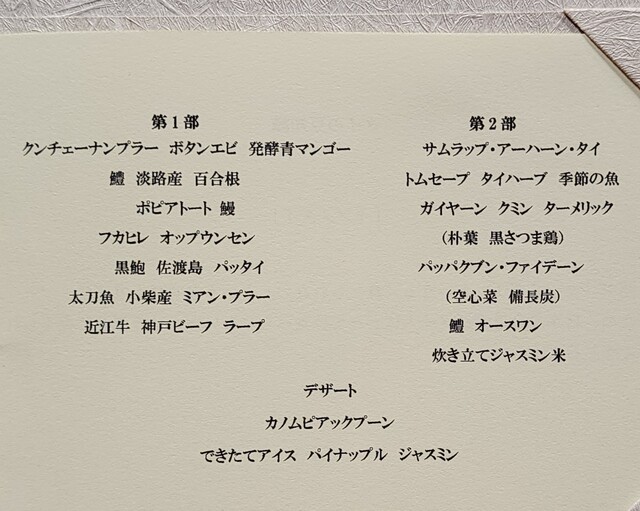 第1部
クンチェーナンプラー ボタンエビ 発酵青マンゴー
鱧 淡路産 百合根
ポピアトート 鰻
フカヒレ オップウンセン
黒鮑 佐渡島 パッタイ
太刀魚 小柴産 ミアン・プラー
近江牛 神戸ビーフ ラープ
第2部
サムラップ・アーハーン・タイ
トムセープ タイハーブ 季節の魚
ガイヤーン クミン ターメリック
（朴葉 黒さつま鶏）
パッパクブン・ファイデーン
（空心菜 備長炭）
鱧 オースワン
炊き立てジャスミン米
デザート
カノムピアックプーン
できたてアイス パイナップル ジャスミン